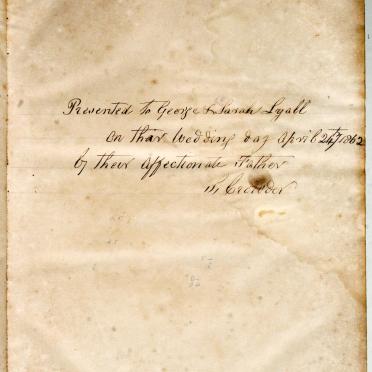 Presented to George & Sarah Lyall
on thair Wedding day April 24th 1862
by their affectionate Father
Crowder